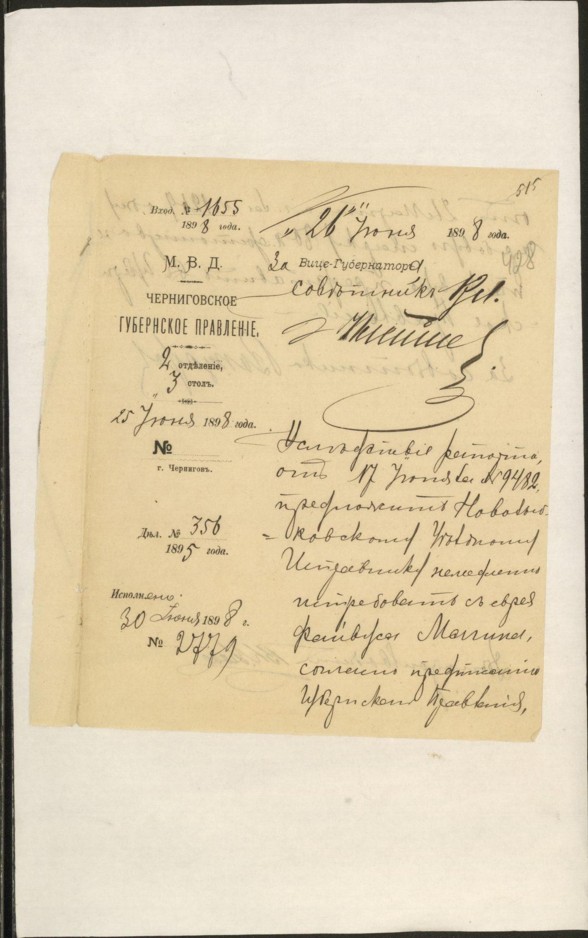 515
928
Вход. № 1655
1898 года.
М. В. Д.
ЧЕРНИГОВСКОЕ
ГУБЕРНСКОЕ ПРАВЛЕНІЕ.
2 отдѣленіе,
3 столъ.
25 Іюня 1898 года.
№
г. Черниговъ.
Дѣл. № 356
1895 года.
Исполнено
30 Іюня 1898 г.
№ 2779
„26" Іюня 1898 года.
За Вице-Губернатора
Совѣтникъ
Вслѣдствіе рапорта,
отъ 17 Іюня за № 9432,
предложить Новозыб-
ковскому Уѣздному
Исправнику немедленно
истребовать съ еврея
Файвуса
согласно предписанію
Правленія,